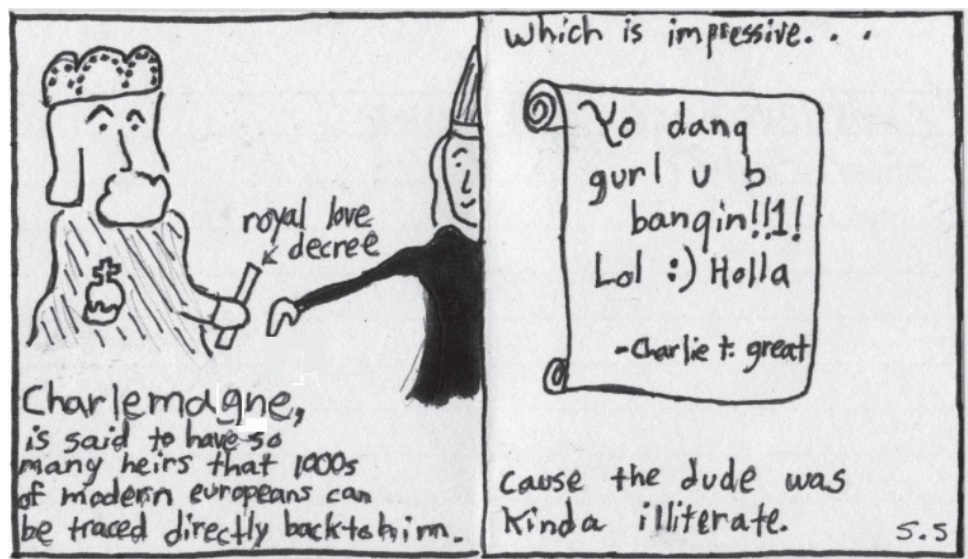 royal love
decree
Charlemagne,
is said to have so
many heirs that 1000s
of modern europeans can
be traced directly back to him.
which is impressive. . .
Yo dang
gurl u b
bangin!!1!
Lol :) Holla
-Charlie t. great
cause the dude was
kinda illiterate.
S.S